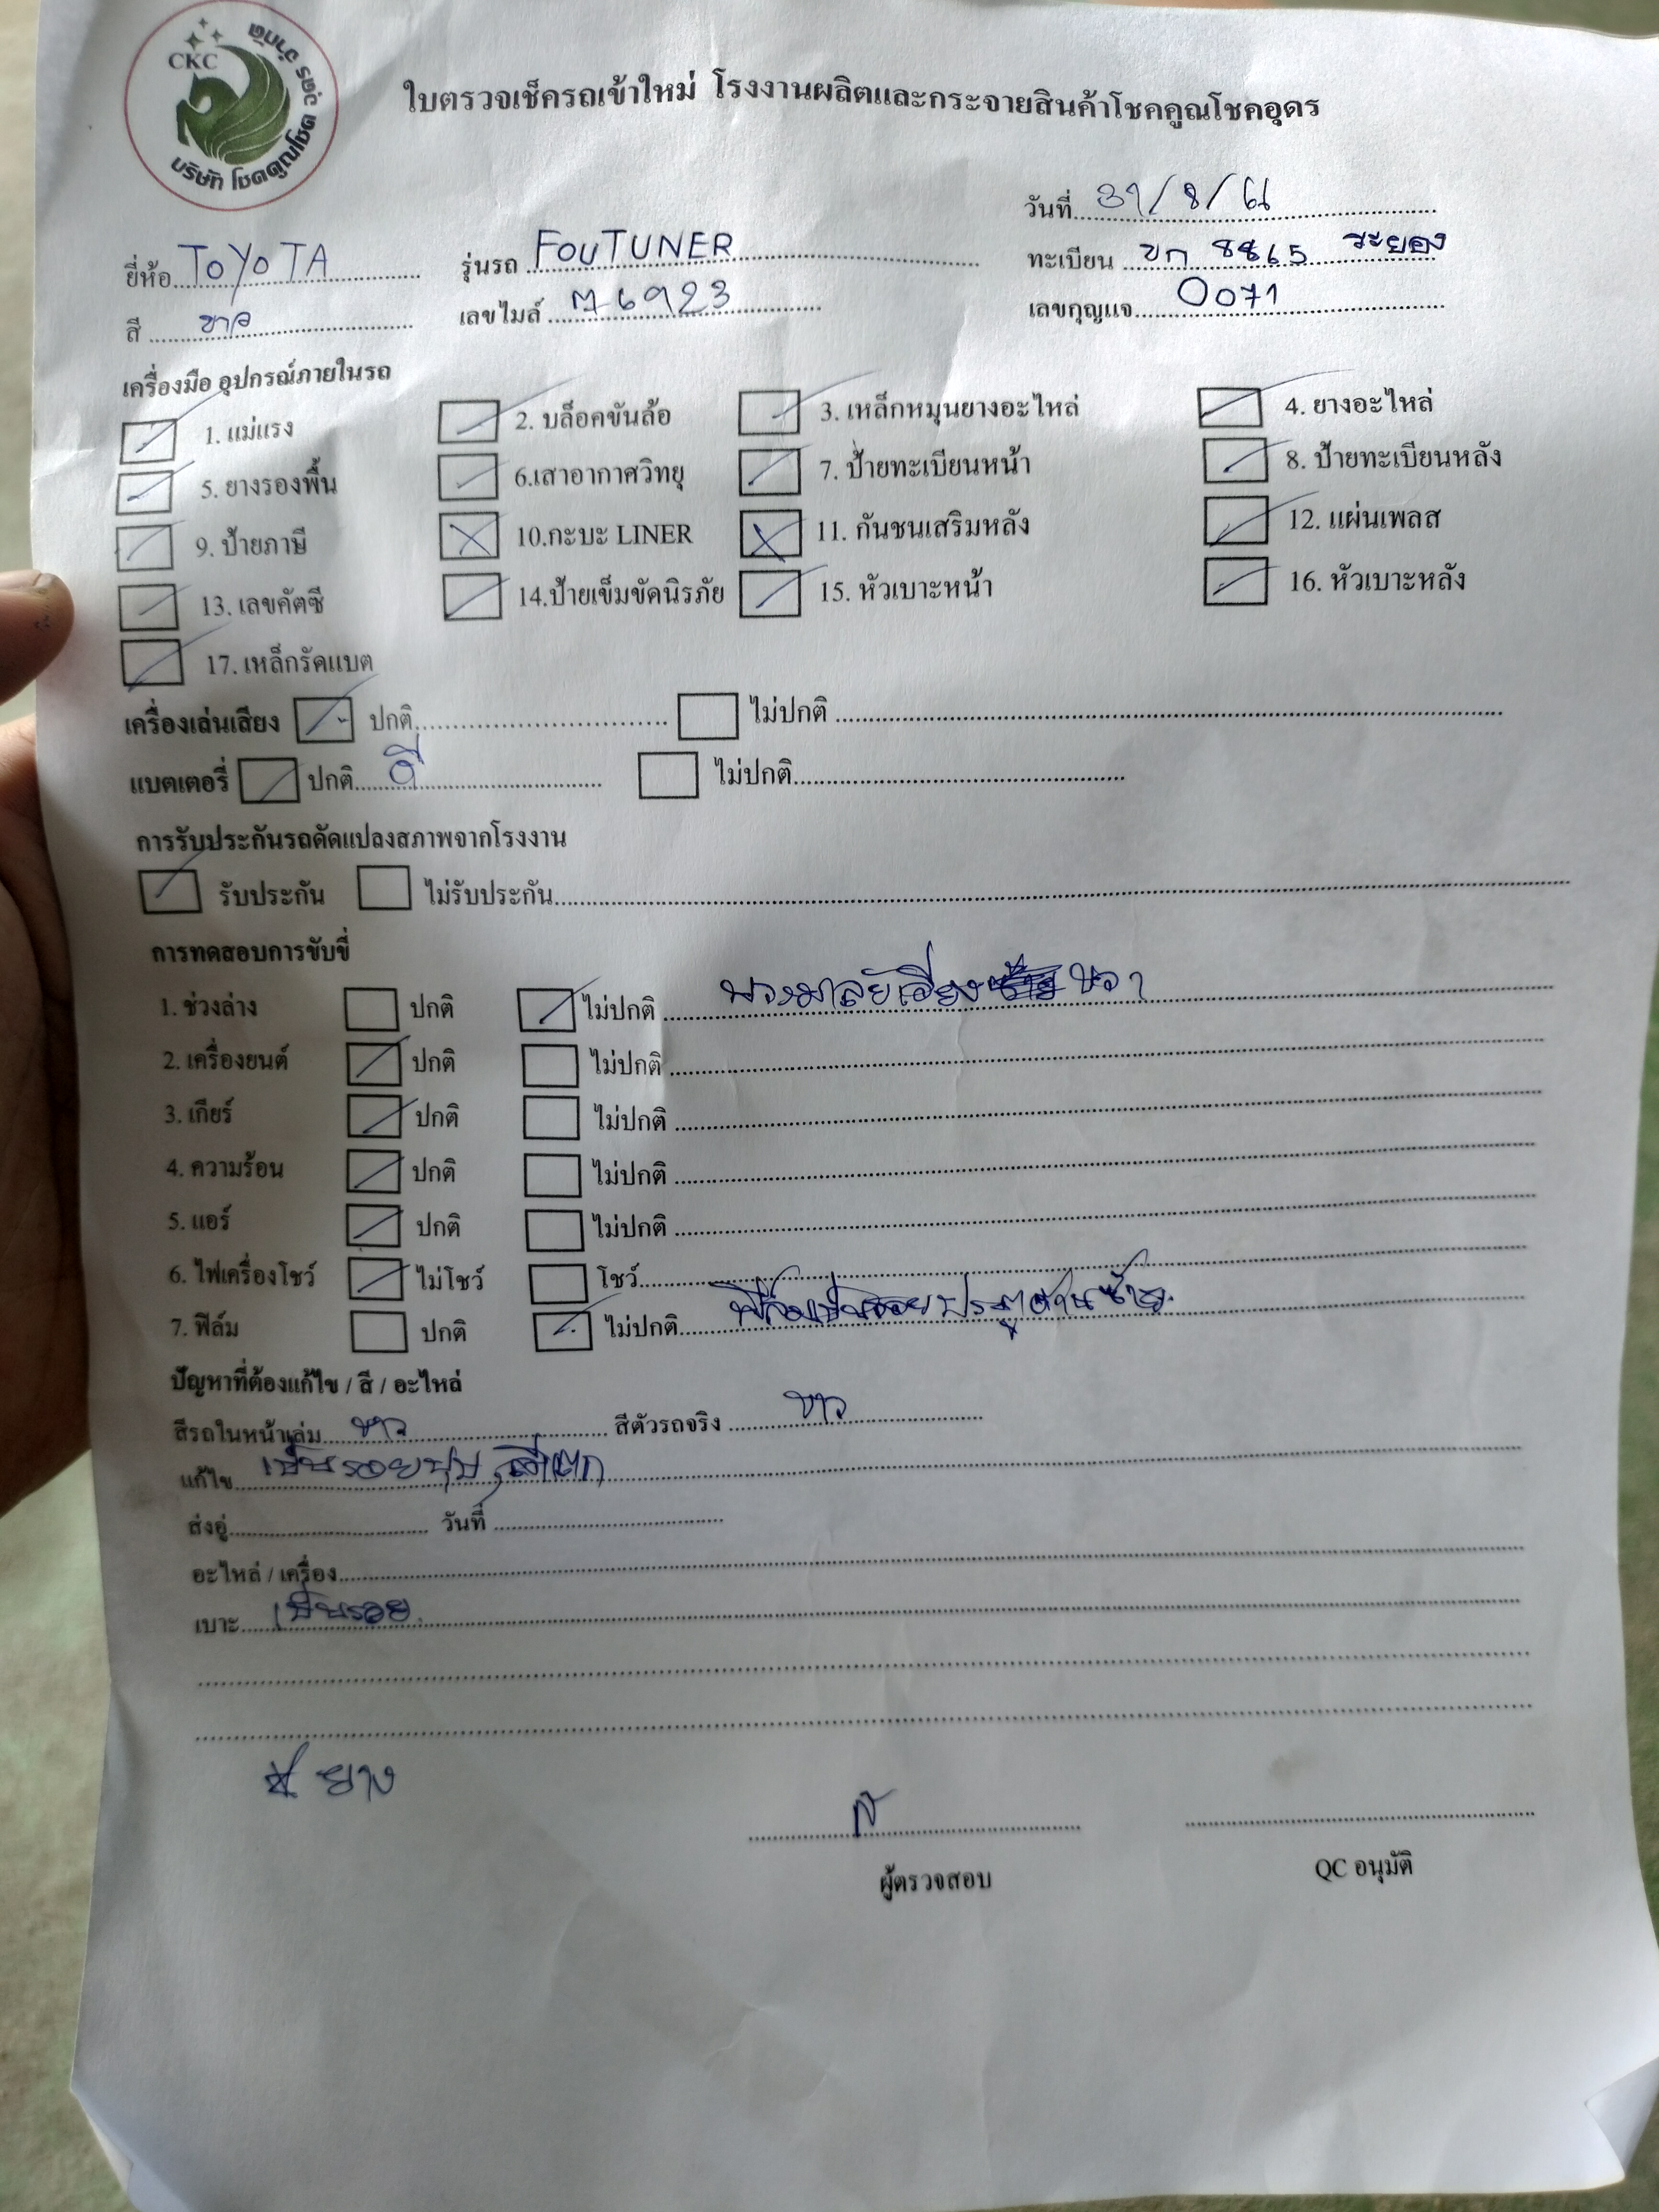 CKC
บริษัท โชคคูณโชค อุดร จำกัด
ใบตรวจเช็ครถเข้าใหม่ โรงงานผลิตและกระจายสินค้าโชคคูณโชคอุดร
วันที่ 31/8/
ยี่ห้อ TOYOTA รุ่นรถ FOUTUNER ทะเบียน ขก 8865 ระยอง
สี ขาว เลขไมล์ เลขกุญแจ 0071
เครื่องมือ อุปกรณ์ภายในรถ
1. แม่แรง 2. บล็อคขันล้อ 3. เหล็กหมุนยางอะไหล่ 4. ยางอะไหล่
5. ยางรองพื้น 6.เสาอากาศวิทยุ 7. ป้ายทะเบียนหน้า 8. ป้ายทะเบียนหลัง
9. ป้ายภาษี 10.กะบะ LINER 11. กันชนเสริมหลัง 12. แผ่นเพลส
13. เลขคัตซี 14.ป้ายเข็มขัดนิรภัย 15. หัวเบาะหน้า 16. หัวเบาะหลัง
17. เหล็กรัดแบต
เครื่องเล่นเสียง ปกติ ไม่ปกติ
แบตเตอรี่ ปกติ ดี ไม่ปกติ
การรับประกันรถดัดแปลงสภาพจากโรงงาน
รับประกัน ไม่รับประกัน
การทดสอบการขับขี่
1. ช่วงล่าง ปกติ ไม่ปกติ พวงมาลัยเอียง ขวา
2. เครื่องยนต์ ปกติ ไม่ปกติ
3. เกียร์ ปกติ ไม่ปกติ
4. ความร้อน ปกติ ไม่ปกติ
5. แอร์ ปกติ ไม่ปกติ
6. ไฟเครื่องโชว์ ไม่โชว์ โชว์
7. ฟิล์ม ปกติ ไม่ปกติ ฟิล์มเป็นรอยประตูด้านซ้าย
ปัญหาที่ต้องแก้ไข / สี / อะไหล่
สีรถในหน้าเล่ม ขาว สีตัวรถจริง ขาว
แก้ไข เป็นรอยบุบ, สีแตก
ส่งอู่ วันที่
อะไหล่ / เครื่อง
เบาะ เป็นรอย
ยาง
ผู้ตรวจสอบ QC อนุมัติ